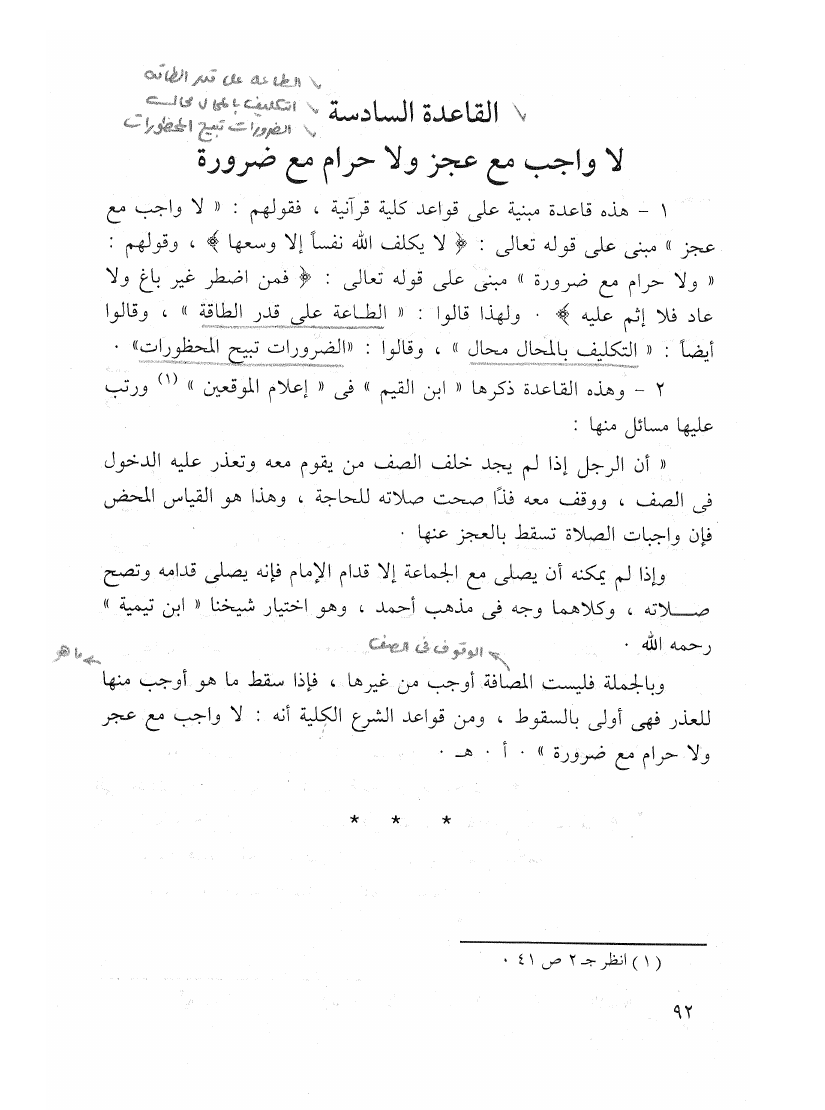 الطاعه على قدر الطاقه
التكليف بالمحال محال
الضرورات تبيح المحظورات
القاعدة السادسة
لا واجب مع عجز ولا حرام مع ضرورة
١ - هذه قاعدة مبنية على قواعد كلية قرآنية ، فقولهم : « لا واجب مع
عجز » مبنى على قوله تعالى : ﴿ لا يكلف الله نفساً إلا وسعها ﴾ ، وقولهم :
« ولا حرام مع ضرورة » مبنى على قوله تعالى : ﴿ فمن اضطر غير باغ ولا
عاد فلا إثم عليه ﴾ . ولهذا قالوا : « الطاعة على قدر الطاقة » ، وقالوا
أيضاً : « التكليف بالمحال محال » ، وقالوا : «الضرورات تبيح المحظورات» .
٢ - وهذه القاعدة ذكرها « ابن القيم » فى « إعلام الموقعين » (١) ورتب
عليها مسائل منها :
« أن الرجل إذا لم يجد خلف الصف من يقوم معه وتعذر عليه الدخول
فى الصف ، ووقف معه فذًا صحت صلاته للحاجة ، وهذا هو القياس المحض
فإن واجبات الصلاة تسقط بالعجز عنها .
وإذا لم يمكنه أن يصلى مع الجماعة إلا قدام الإمام فإنه يصلى قدامه وتصح
صـــلاته ، وكلاهما وجه فى مذهب أحمد ، وهو اختيار شيخنا « ابن تيمية »
رحمه الله .
الوقوف فى الصف
ما هو
وبالجملة فليست المصافة أوجب من غيرها ، فإذا سقط ما هو أوجب منها
للعذر فهى أولى بالسقوط ، ومن قواعد الشرع الكلية أنه : لا واجب مع عجر
ولا حرام مع ضرورة » . أ . هـ .
* * *
(١) انظر جـ ٢ ص ٤١ .
٩٢